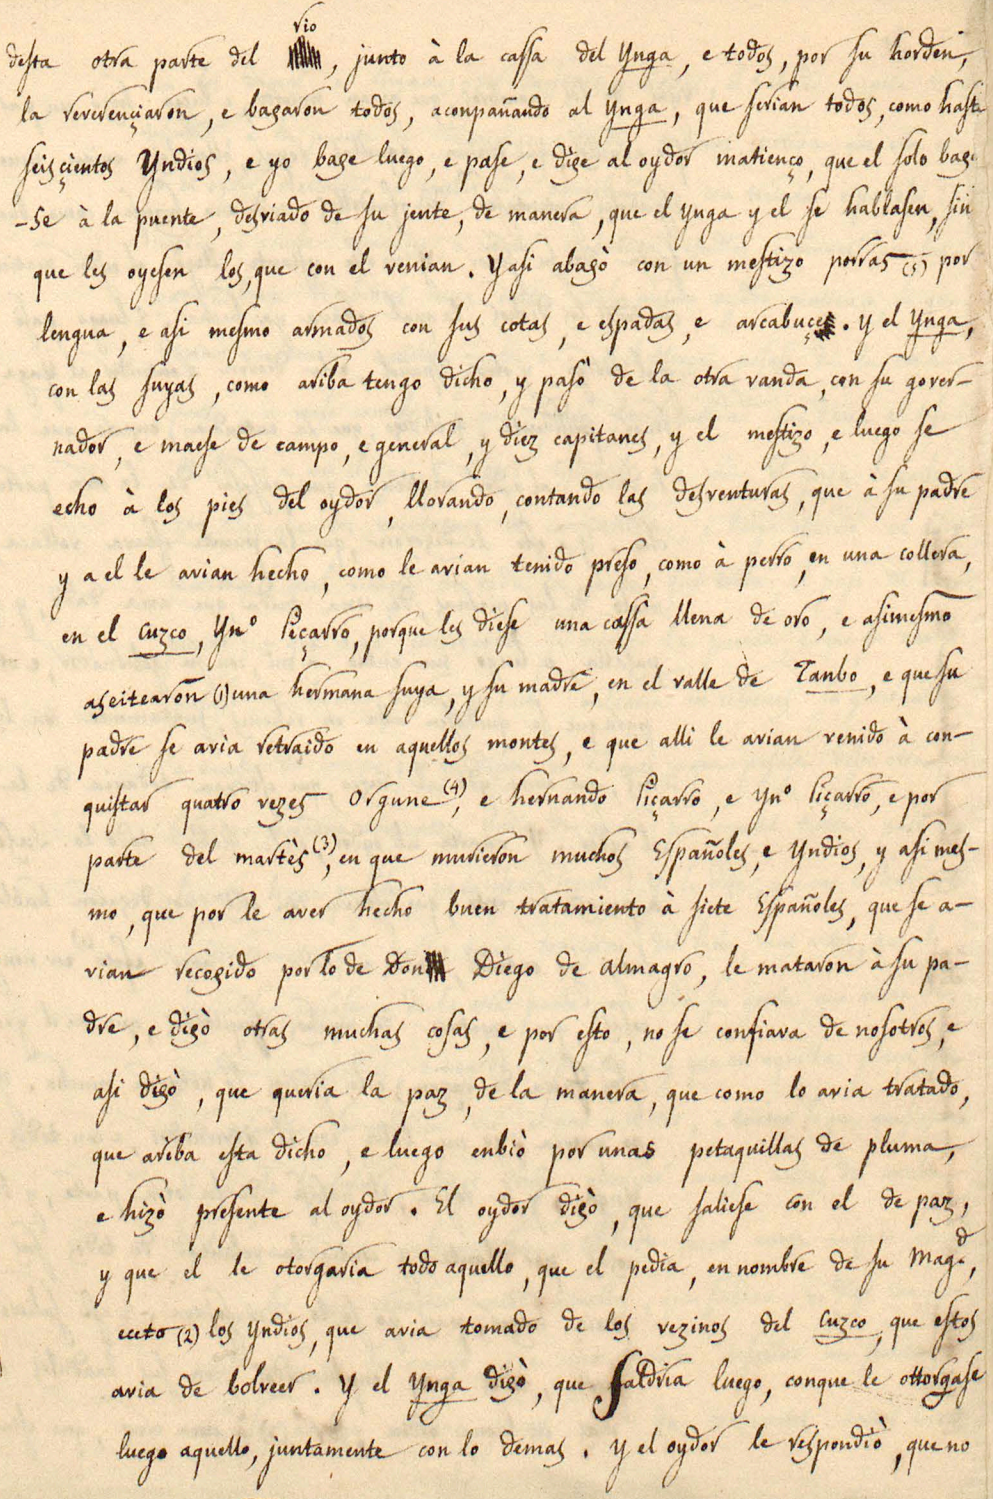 rio
desta otra parte del , junto à la cassa del Ynga, e todos, por su horden,
la rererençiaron, e bagaron todos, aconpañando al Ynga, que serian todos, como hasta
seisçientos Yndios, e yo bage luego, e pase, e dige al oydor matienço, que el solo bage
-se à la puente, desviado de su jente, de manera, que el ynga y el se hablasen, sin
que les oyesen los, que con el venian. Y asi abagò con un mestizo porras (5) por
lengua, e asi mesmo armados con sus cotas, e espadas, e arcabuçes. Y el Ynga,
con las suyas, como ariba tengo dicho, y pasò de la otra vanda, con su gover-
nador, e maese de campo, e general, y diez capitanes, y el mestizo, e luego se
echo à los pies del oydor, llorando, contando las desventuras, que à su padre
y a el le avian hecho, como le avian tenido preso, como à perro, en una collera,
en el Cuzco, Ynº Piçarro, porque les diese una cassa llena de oro, e asimesmo
aseitearon (1) una hermana suya, y su madre, en el valle de Tanbo, e que su
padre se avia retraido en aquellos montes, e que alli le avian venido à con-
quistar quatro vezes Orgune (4), e hernando Piçarro, e Ynº Piçarro, e por
parte del martès (3), en que murieron muchos Españoles, e Yndios, y asi mes-
mo, que por le aver hecho buen tratamiento à siete Españoles, que se a-
vian recogido por lo de Don Diego de Almagro, le mataron à su pa-
dre, e digò otras muchas cosas, e por esto, no se confiava de nosotros, e
asi digò, que queria la paz, de la manera, que como lo avia tratado,
que ariba esta dicho, e luego enbiò por unas petaquillas de pluma,
e hizò presente al oydor. El oydor digò, que saliese con el de paz,
y que el le otorgaria todo aquello, que el pedia, en nombre de su Magd,
eceto (2) los Yndios, que avia tomado de los vezinos del Cuzco, que estos
avia de bolveer. Y el Ynga digò, que saldria luego, conque le ottorgase
luego aquello, juntamente con lo demas. Y el oydor le respondiò, que no